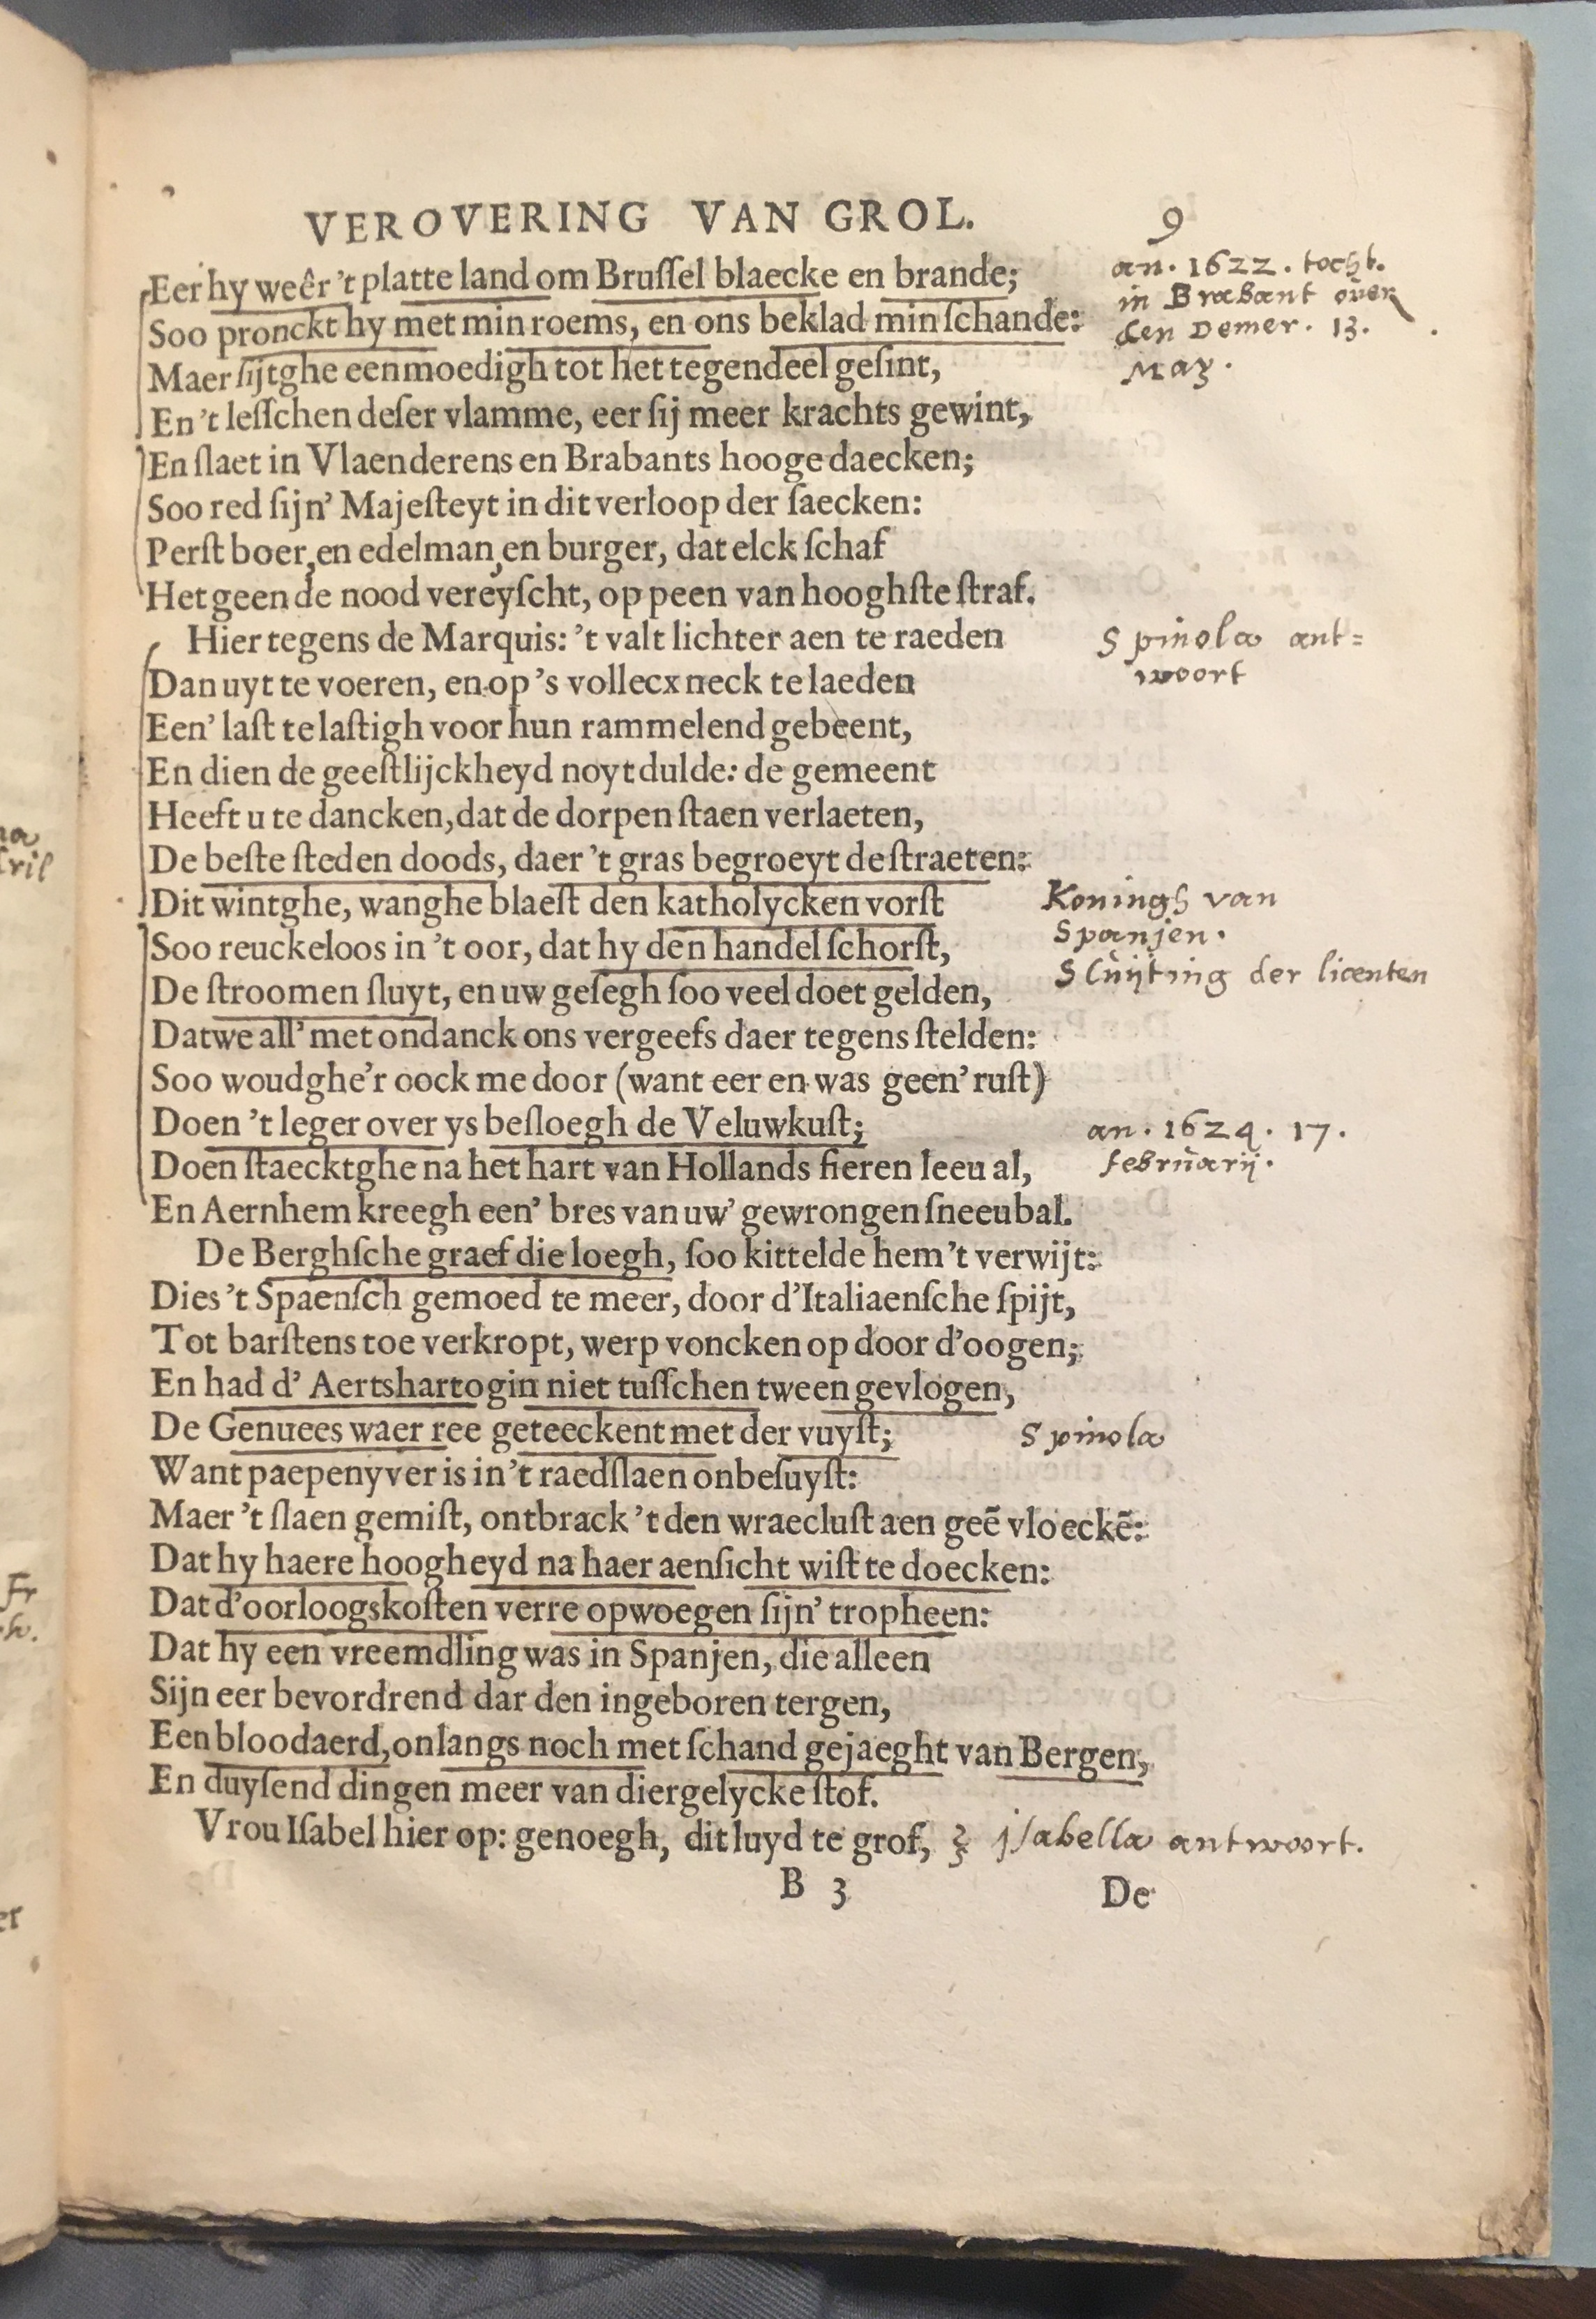 VEROVERING VAN GROL. 9
Eer hy weêr 't platte land om Brusſel blaecke en brande;
an. 1622. tocht.
Soo pronckt hy met min roems, en ons beklad min ſchande:
in Brabant over
den Demer. 13.
Maer ſijtghe eenmoedigh tot het tegendeel geſint,
May.
En 't lesſchen deſer vlamme, eer ſij meer krachts gewint,
En ſlaet in Vlaenderens en Brabants hooge daecken;
Soo red ſijn' Majeſteyt in dit verloop der ſaecken:
Perſt boer, en edelman, en burger, dat elck ſchaf
Het geen de nood vereyſcht, op peen van hooghſte ſtraf.
Hier tegens de Marquis: 't valt lichter aen te raeden
Spinola ant=
Dan uyt te voeren, en op 's vollecx neck te laeden
woort
Een' laſt te laſtigh voor hun rammelend gebeent,
En dien de geeſtlijckheyd noyt dulde: de gemeent
Heeft u te dancken, dat de dorpen ſtaen verlaeten,
De beſte ſteden doods, daer 't gras begroeyt de ſtraeten:
Dit wintghe, wanghe blaeſt den katholycken vorſt
Koningh van
Soo reuckeloos in 't oor, dat hy den handel ſchorſt,
Spanjen.
De ſtroomen ſluyt, en uw geſegh ſoo veel doet gelden,
Sluijting der licenten
Datwe all' met ondanck ons vergeefs daer tegens ſtelden:
Soo woudghe'r oock me door (want eer en was geen' ruſt)
Doen 't leger over ys beſloegh de Veluwkuſt;
an. 1624. 17.
Doen ſtaecktghe na het hart van Hollands fieren leeu al,
februarij.
En Aernhem kreegh een' bres van uw' gewrongen ſneeubal.
De Berghſche graef die loegh, ſoo kittelde hem 't verwijt:
Dies 't Spaenſch gemoed te meer, door d'Italiaenſche ſpijt,
Tot barſtens toe verkropt, werp voncken op door d'oogen;
En had d' Aertshartogin niet tusſchen tween gevlogen,
De Genuees waer ree geteeckent met der vuyſt;
Spinola
Want paepenyver is in 't raedſlaen onbeſuyſt:
Maer 't ſlaen gemiſt, ontbrack 't den wraecluſt aen geē vloeckē:
Dat hy haere hoogheyd na haer aenſicht wiſt te doecken:
Dat d'oorloogskoſten verre opwoegen ſijn' tropheen:
Dat hy een vreemdling was in Spanjen, die alleen
Sijn eer bevordrend dar den ingeboren tergen,
Een bloodaerd, onlangs noch met ſchand gejaeght van Bergen,
En duyſend dingen meer van diergelycke ſtof.
Vrou Iſabel hier op: genoegh, dit luyd te grof,
iſabella antwoort.
B 3 De